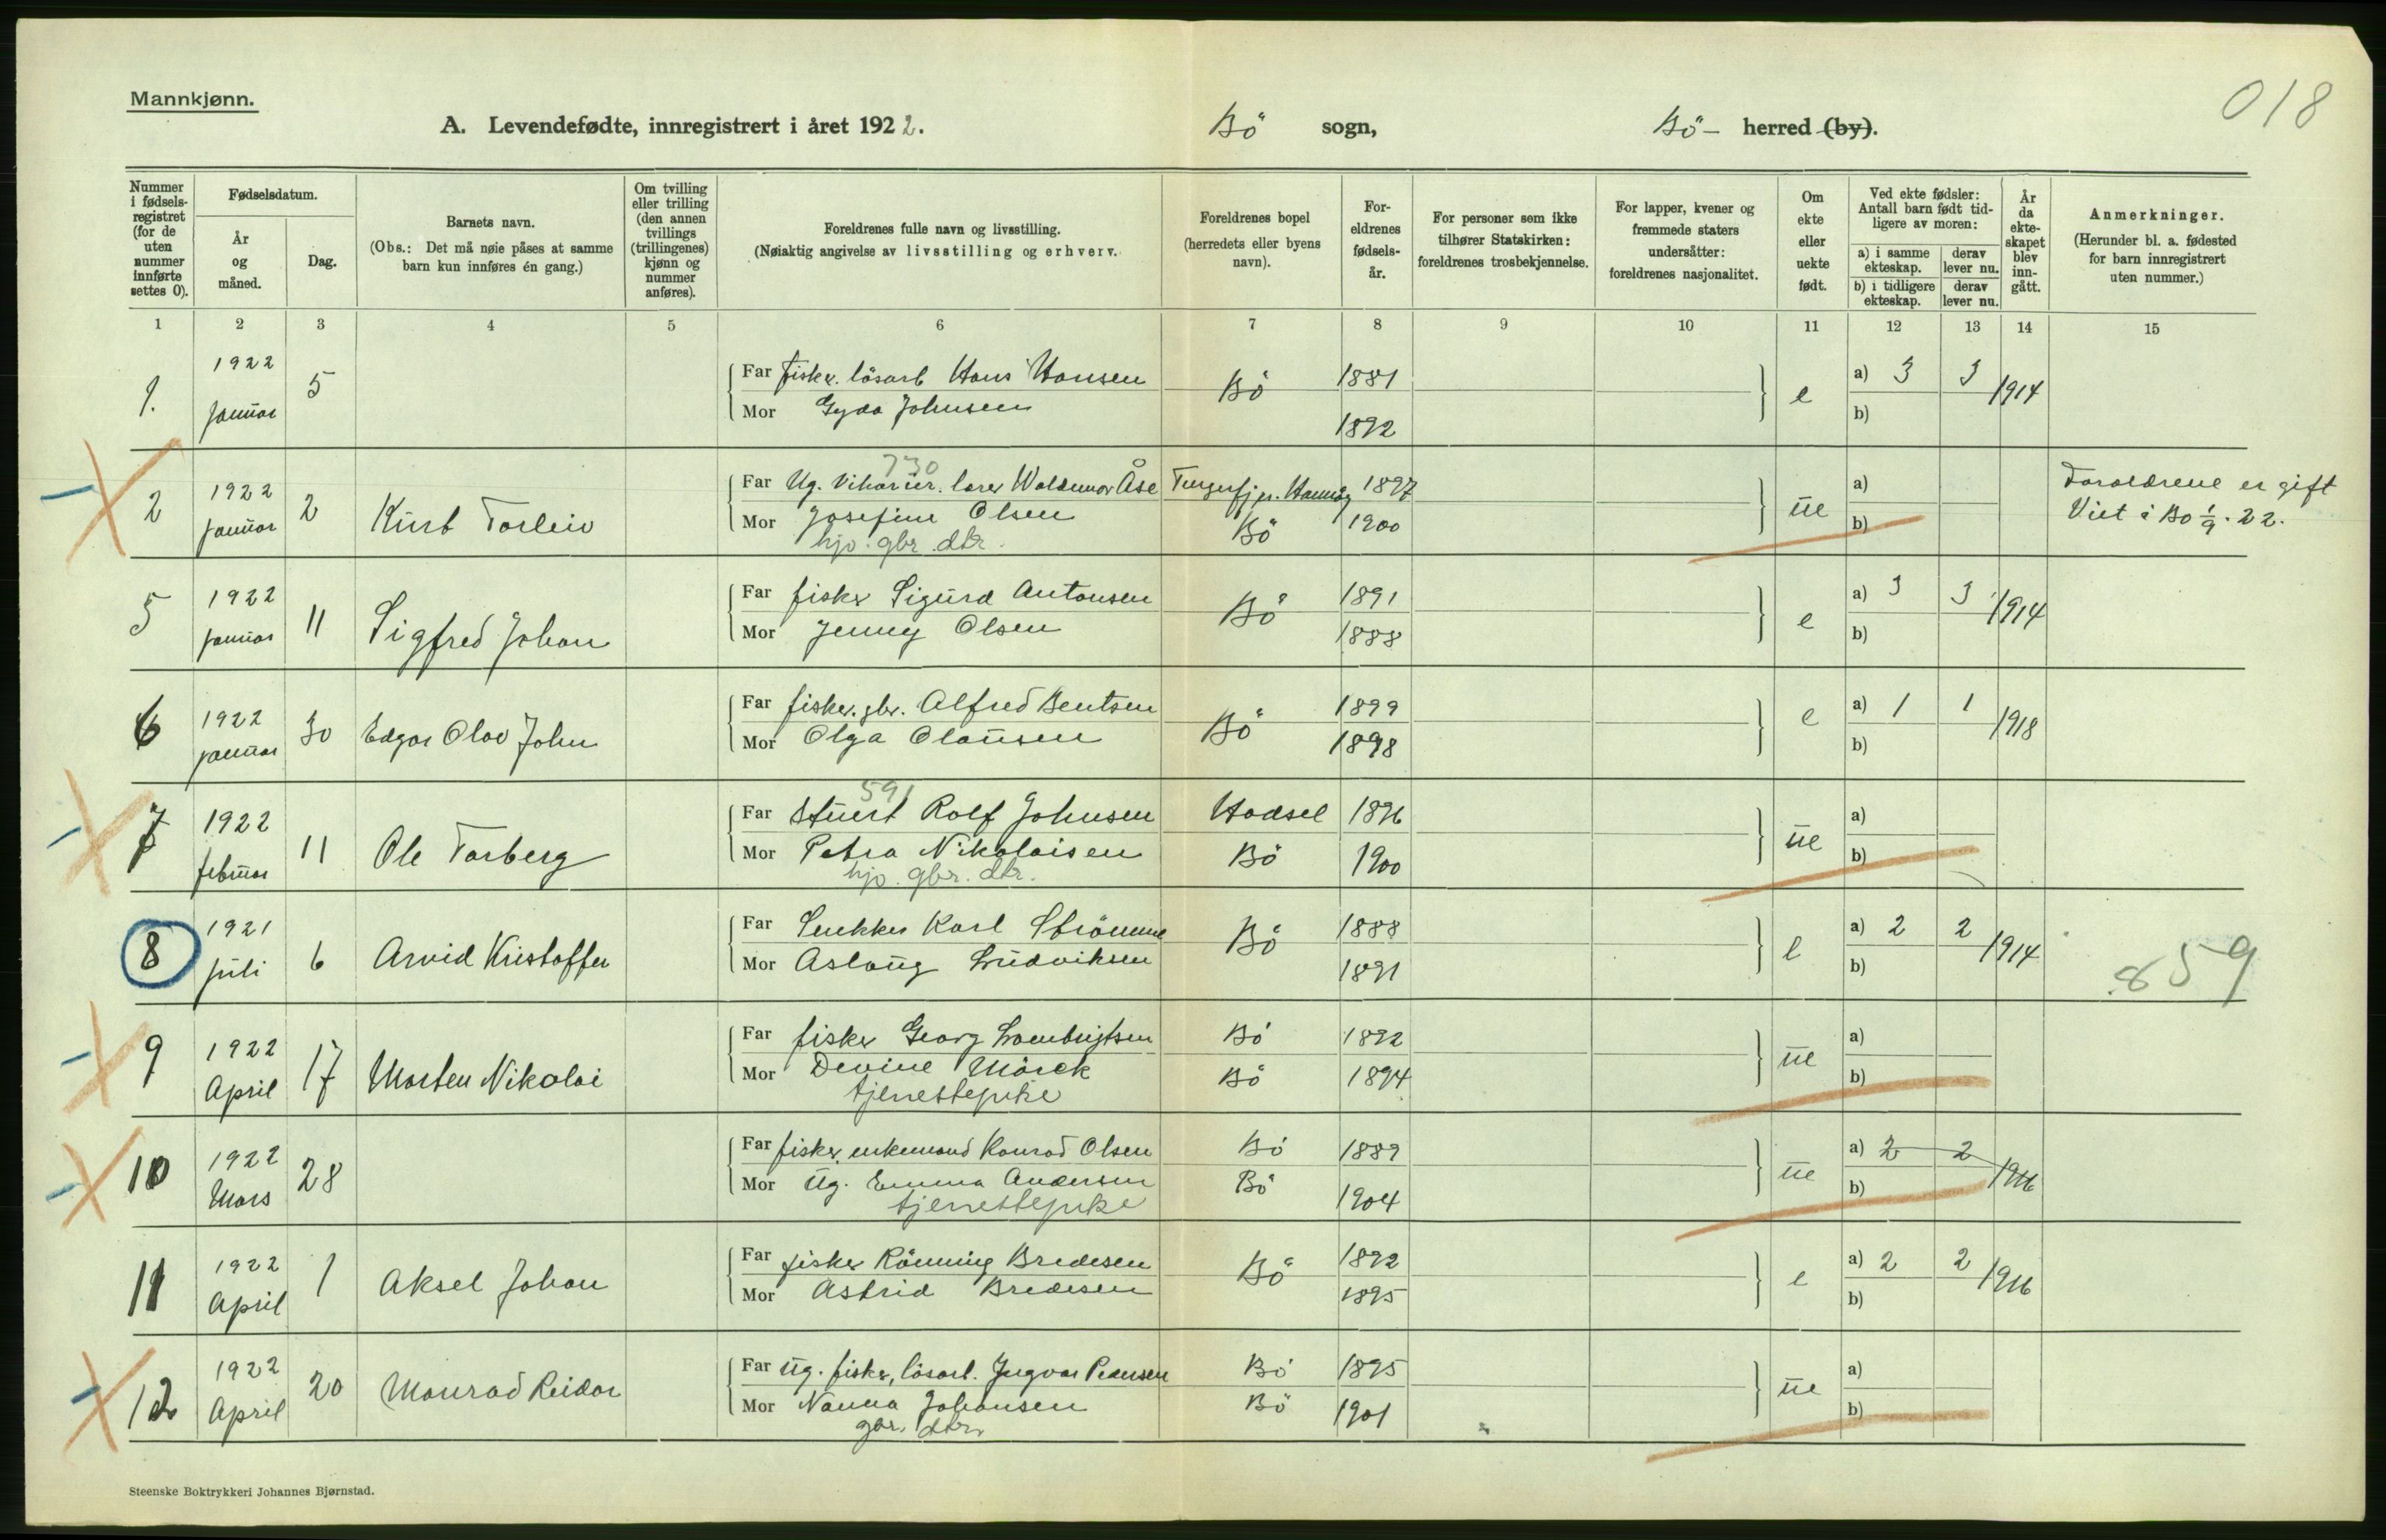 Mannkjønn.
018
A. Levendefødte, innregistrert i året 1922. Bö sogn, Bö – herred (by).
Nummer i fødselsregistret (for de uten nummer innførte settes 0).
Fødselsdatum.
År og måned.
Dag.
Barnets navn.
(Obs.: Det må nøie påses at samme barn kun innføres én gang.)
Om tvilling eller trilling (den annen tvillings (trillingenes) kjønn og nummer anføres).
Foreldrenes fulle navn og livsstilling.
(Nøiaktig angivelse av livsstilling og erhverv.
Foreldrenes bopel (herredets eller byens navn).
Foreldrenes fødselsår.
For personer som ikke tilhører Statskirken: foreldrenes trosbekjennelse.
For lapper, kvener og fremmede staters undersåtter: foreldrenes nasjonalitet.
Om ekte eller uekte født.
Ved ekte fødsler: Antall barn født tidligere av moren:
a) i samme ekteskap. derav lever nu.
b) i tidligere ekteskap. derav lever nu.
År da ekteskapet blev inngått.
Anmerkninger.
(Herunder bl. a. fødested for barn innregistrert uten nummer.)
1 2 3 4 5 6 7 8 9 10 11 12 13 14 15
1. 1922 januar 5 Far fisker. lösarb Hans Hansen Bö 1881 e a) 3 3 1914
Mor Gyda Johnsen 1892 b)
730
2 1922 januar 2 Kurt Torleiv Far Ug. Vikarier. lærer Waldemar Åse 1897 ue a) Foreldrene er gift
Mor Josefine Olsen Bö 1900 b) Viet i Bö 1/9. 22.
hjv. gbr. dtr.
5 1922 januar 11 Sigfred Johan Far fisker Sigurd Antonsen Bö 1891 e a) 3 3 1914
Mor Jenny Olsen 1888 b)
6 1922 januar 30 Edgar Olav John Far fisker. gbr. Alfred Bentsen Bö 1899 e a) 1 1 1918
Mor Olga Olausen 1898 b)
591
7 1922 februar 11 Ole Torberg Far Stuert Rolf Johnsen Hadsel 1896 ue a)
Mor Petra Nikolaisen Bö 1900 b)
hjv. gbr. dtr.
8 1921 juli 6 Arvid Kristoffer Far Snekker Karl Strömme Bö 1888 e a) 2 2 1914
Mor Aslaug Ludviksen 1891 b) 859
9 1922 April 17 Morten Nikolai Far fisker Georg Lambrigtsen Bö 1892 ue a)
Mor Devine Mörck Bö 1894 b)
tjenestepike
10 1922 Mars 28 Far fisker, enkemand Konrad Olsen Bö 1889 ue a) 2 2 1916
Mor Ug. Emma Andersen Bö 1904 b)
tjenestepike
11 1922 April 1 Aksel Johan Far fisker Rönning Bredesen Bö 1892 e a) 2 2 1916
Mor Astrid Bredesen 1895 b)
12 1922 April 20 Monrad Reidar Far Ug. fisker, lösarb. Ingvar Pedersen Bö 1895 ue a)
Mor Nanna Johansen Bö 1901 b)
gbr. dtr.
Steenske Boktrykkeri Johannes Bjørnstad.